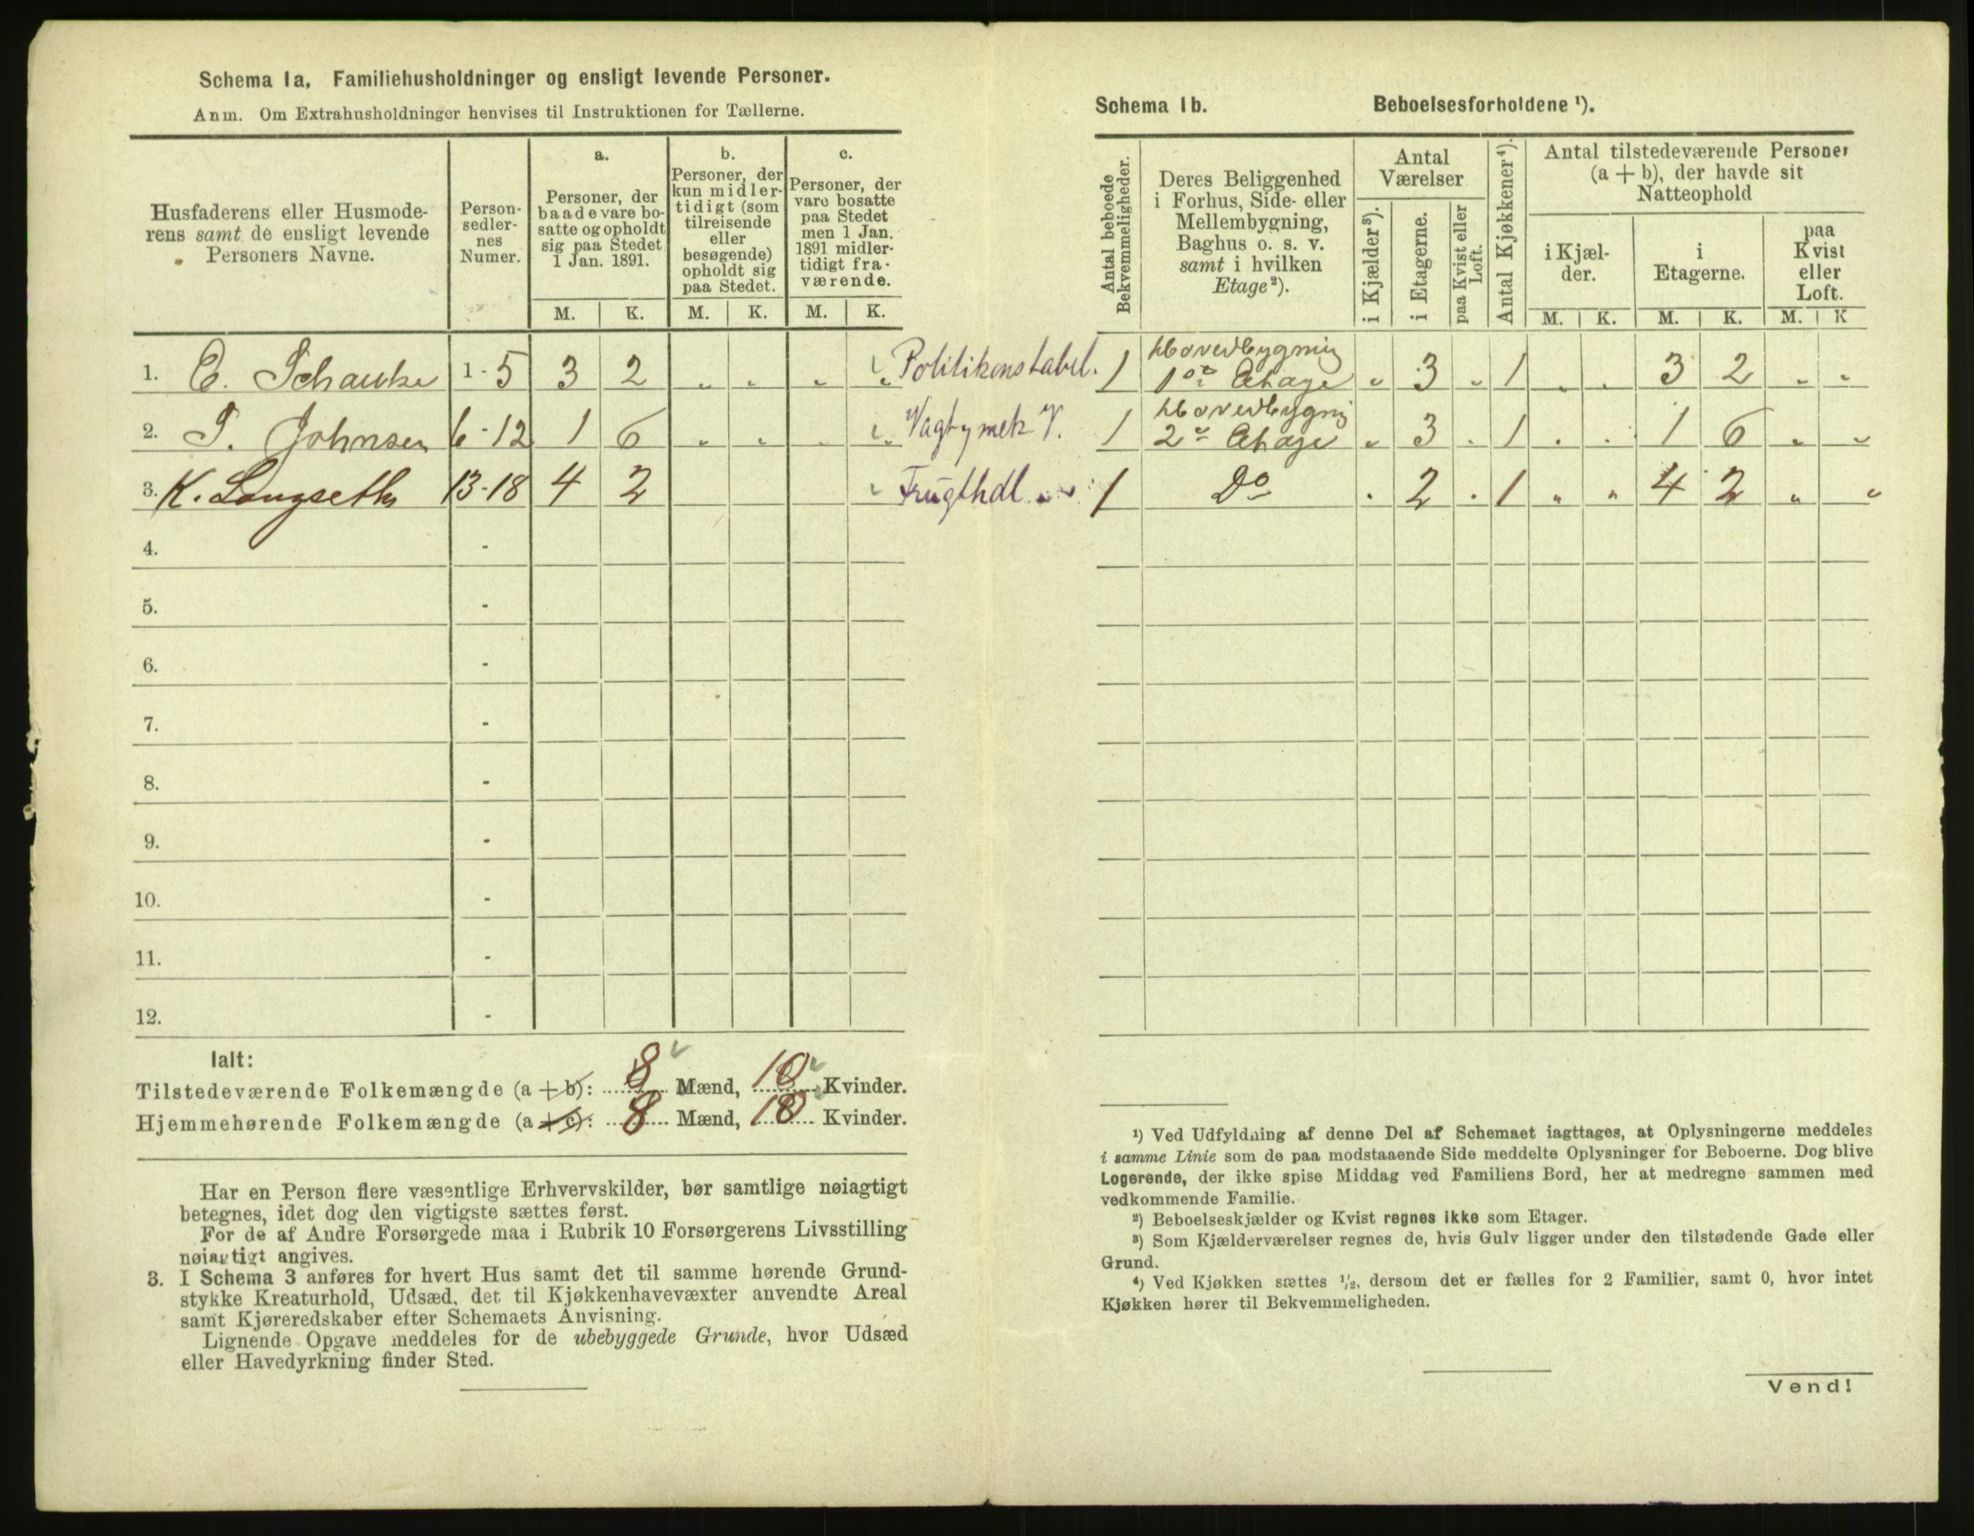 Schema 1a. Familiehusholdninger og ensligt levende Personer.
Anm. Om Extrahusholdninger henvises til Instruktionen for Tællerne.
Husfaderens eller Husmoderens samt de ensligt levende Personers Navne.
Personsedlernes Numer.
a. Personer, der baade vare bosatte og opholdt sig paa Stedet 1 Jan. 1891.
b. Personer, der kun midlertidigt (som tilreisende eller besøgende) opholdt sig paa Stedet.
c. Personer, der vare bosatte paa Stedet men 1 Jan. 1891 midlertidigt fraværende.
M. K. M. K. M. K.
1. E. Schauke 1-5 3 2 „ „ „ „ Politikonstabel.
2. P. Johnsen 6-12 1 6 „ „ „ „ Vagtymek V.
3. K. Langseth 13-18 4 2 Frugthdl
4. -
5. -
6. -
7. -
8. -
9. -
10. -
11. -
12. -
Ialt:
Tilstedeværende Folkemængde (a + b): 8 Mænd, 10 Kvinder.
Hjemmehørende Folkemængde (a + c): 8 Mænd, 10 Kvinder.
Har en Person flere væsentlige Erhvervskilder, bør samtlige nøiagtigt
betegnes, idet dog den vigtigste sættes først.
For de af Andre Forsørgede maa i Rubrik 10 Forsørgerens Livsstilling
nøiagtigt angives.
3. I Schema 3 anføres for hvert Hus samt det til samme hørende Grund-
stykke Kreaturhold, Udsæd, det til Kjøkkenhavevæxter anvendte Areal
samt Kjøreredskaber efter Schemaets Anvisning.
Lignende Opgave meddeles for de ubebyggede Grunde, hvor Udsæd
eller Havedyrkning finder Sted.
Schema 1b. Beboelsesforholdene ¹).
Antal beboede Bekvemmeligheder.
Deres Beliggenhed i Forhus, Side- eller Mellembygning, Baghus o. s. v. samt i hvilken Etage²).
Antal Værelser
i Kjælder³).
i Etagerne.
paa Kvist eller Loft.
Antal Kjøkkener⁴).
Antal tilstedeværende Personer (a + b), der havde sit Natteophold
i Kjælder.
i Etagerne.
paa Kvist eller Loft.
M. K. M. K. M. K
1 Hovedbygning 1ste Etage „ 3 „ 1 „ „ 3 2 „ „
1 Hovedbygnig 2den Etage „ 3 . 1 . . 1 6 „ „
1 Do . 2 . 1 „ „ 4 2 „ „
¹) Ved Udfyldning af denne Del af Schemaet iagttages, at Oplysningerne meddeles
i samme Linie som de paa modstaaende Side meddelte Oplysninger for Beboerne. Dog blive
Logerende, der ikke spise Middag ved Familiens Bord, her at medregne sammen med
vedkommende Familie.
²) Beboelseskjælder og Kvist regnes ikke som Etager.
³) Som Kjælderværelser regnes de, hvis Gulv ligger under den tilstødende Gade eller
Grund.
⁴) Ved Kjøkken sættes ½, dersom det er fælles for 2 Familier, samt 0, hvor intet
Kjøkken hører til Bekvemmeligheden.
Vend!